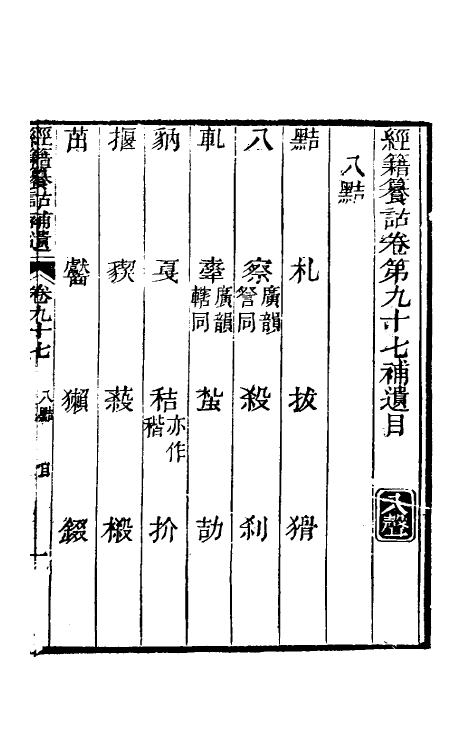 經籍籑詁卷第九十七補遺目 入聲
八黠
黠 札 拔 猾
八 察廣韻詧同 殺 刹
軋 舝廣韻轄同 蚻 劼
豽 戛 秸亦作稭 扴
揠 猰 蔱 樧
茁 齾 獺 錣
經籍籑詁補遺 卷九十七 八黠 目 一